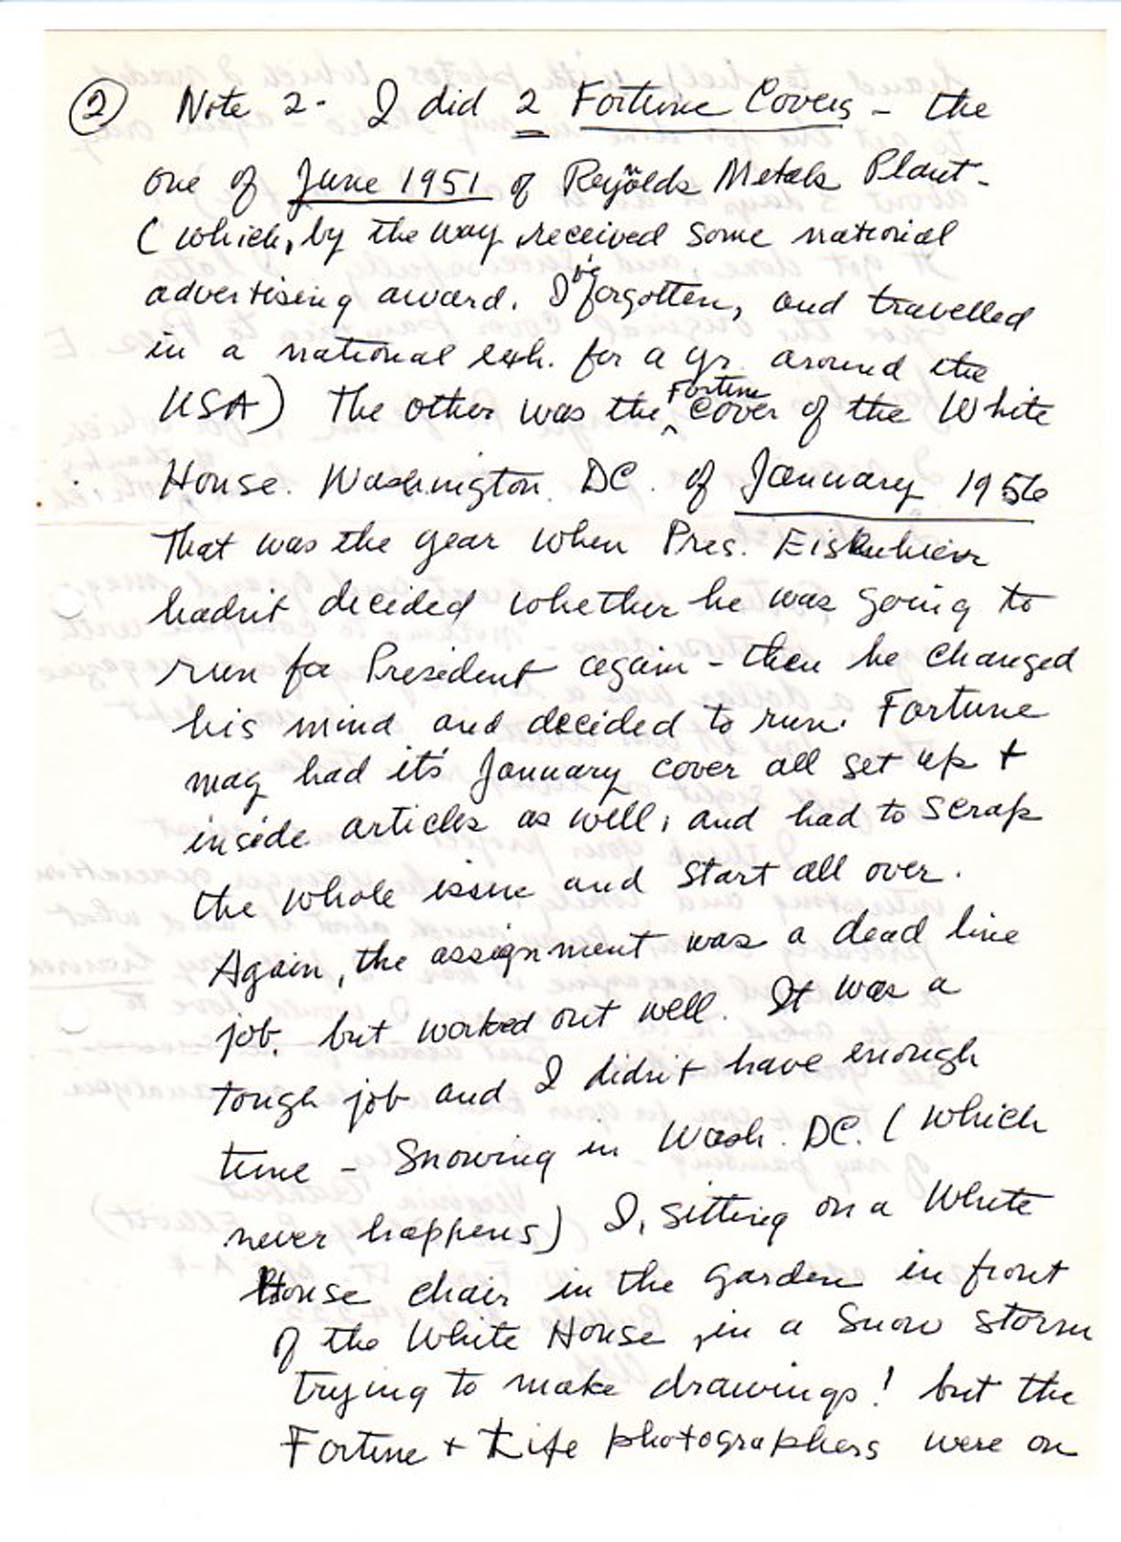 ② Note 2- I did 2 Fortune Covers - the
one of June 1951 of Reynolds Metals Plant -
( which, by the way, received some national
advertising award. I've forgotten, and travelled
in a national exh. for a yr. around the
USA) The other was the Fortune cover of the White
House. Washington. DC. of January 1956
That was the year when Pres. Eisenhower
hadn't decided whether he was going to
run for President again - then he changed
his mind and decided to run. Fortune
mag had it's January cover all set up +
inside articles as well, and had to scrap
the whole issue and start all over.
Again, the assignment was a dead line
job, but worked out well. It was a
tough job and I didn't have enough
time - Snowing in Wash. DC. ( which
never happens) I, sitting on a White
House chair in the garden in front
of the White House, in a snow storm
trying to make drawings! but the
Fortune + Life photographers were on